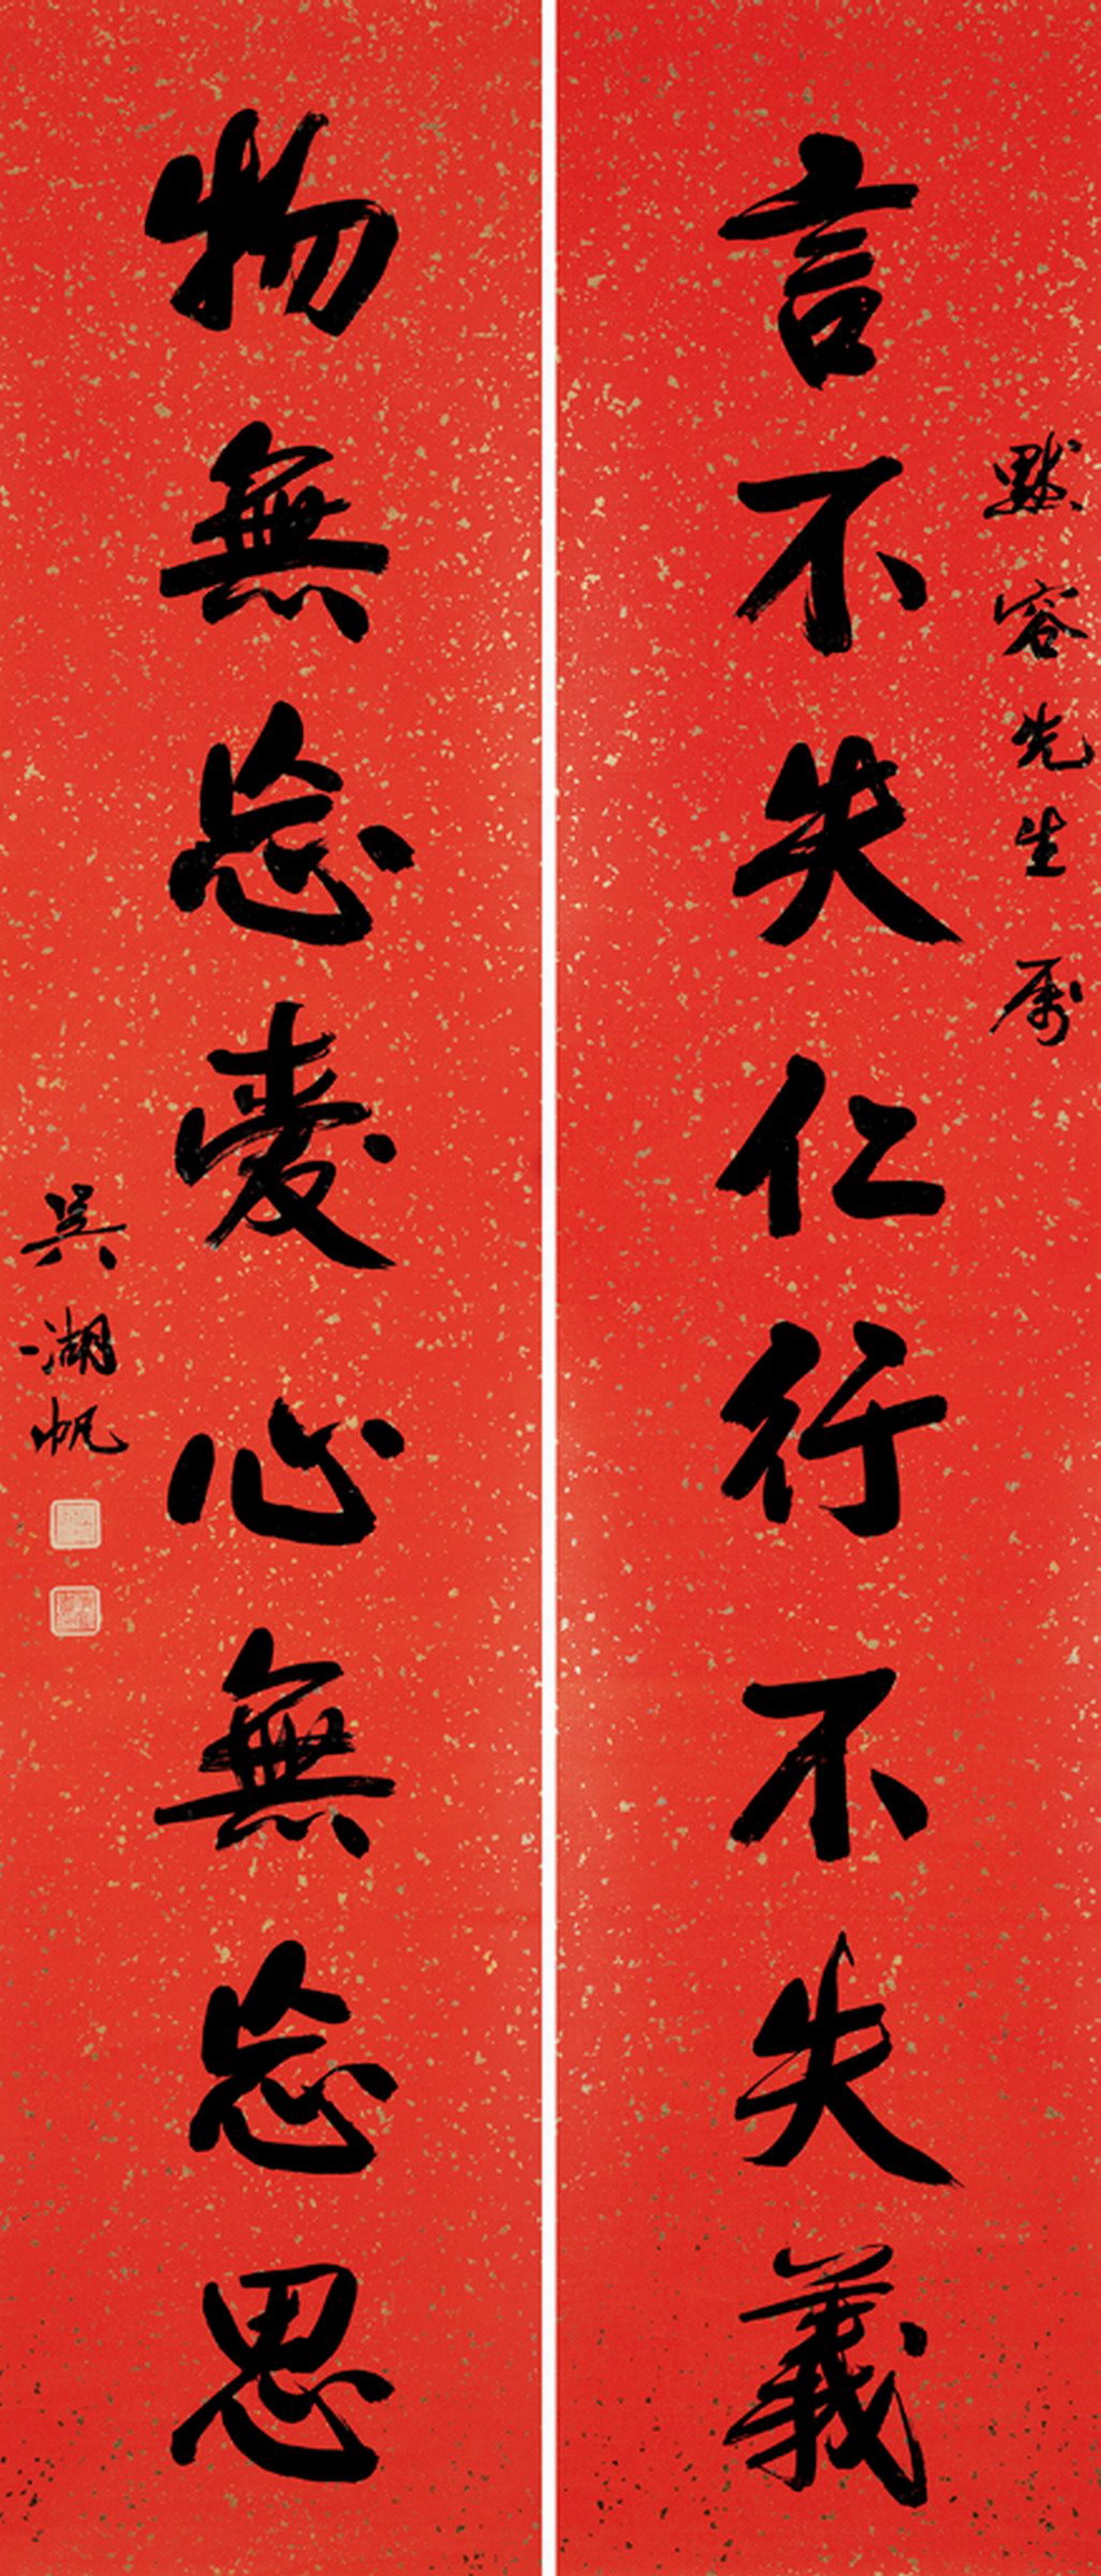 默容先生屬
言不失仁行不失義
物無憂心無思
吳湖帆